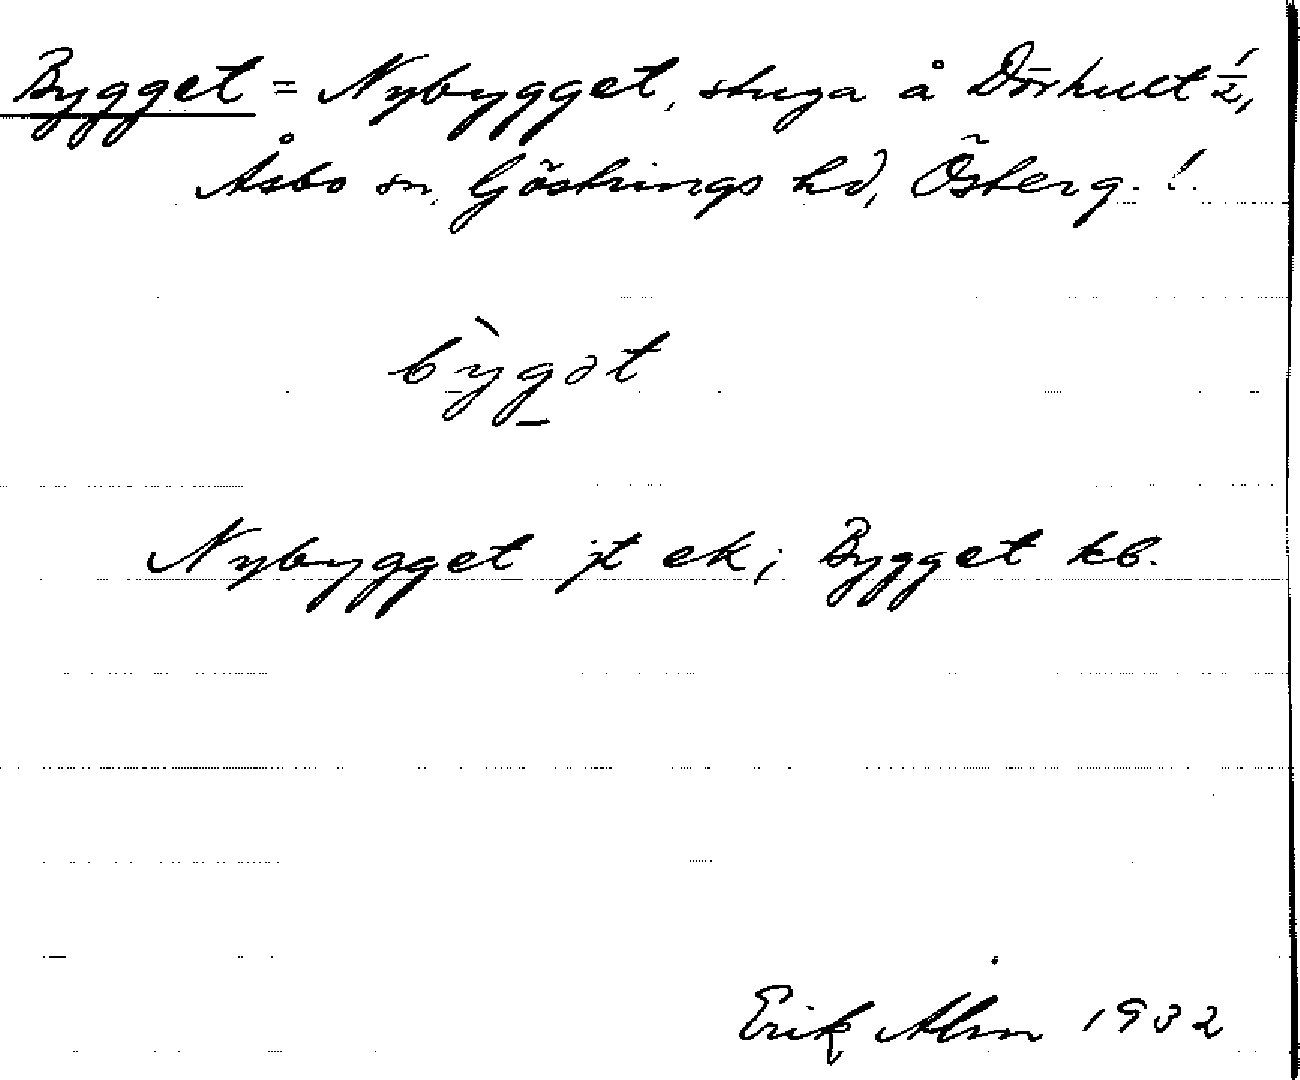 Bygget = Nybygget, stuga å Dörhult 1/2,
Åsbo sn, Göstrings hd, Österg. !
bỳg̲ət
Nybygget jt ek; Bygget kb.
Erik Alm 1932